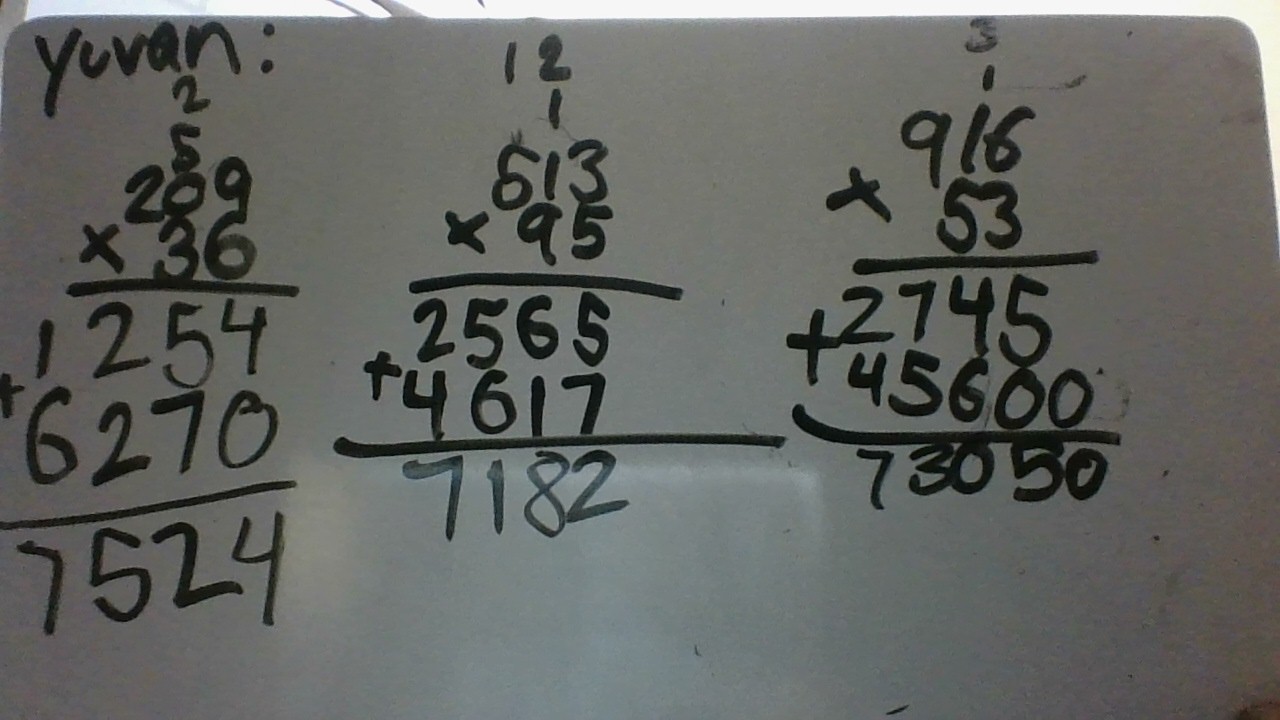 yuvan:
2
5
209
x 36
1254
+6270
7524
1 2
1
513
x 95
2565
+4617
7182
3
1
916
x 53
2745
+45600
73050